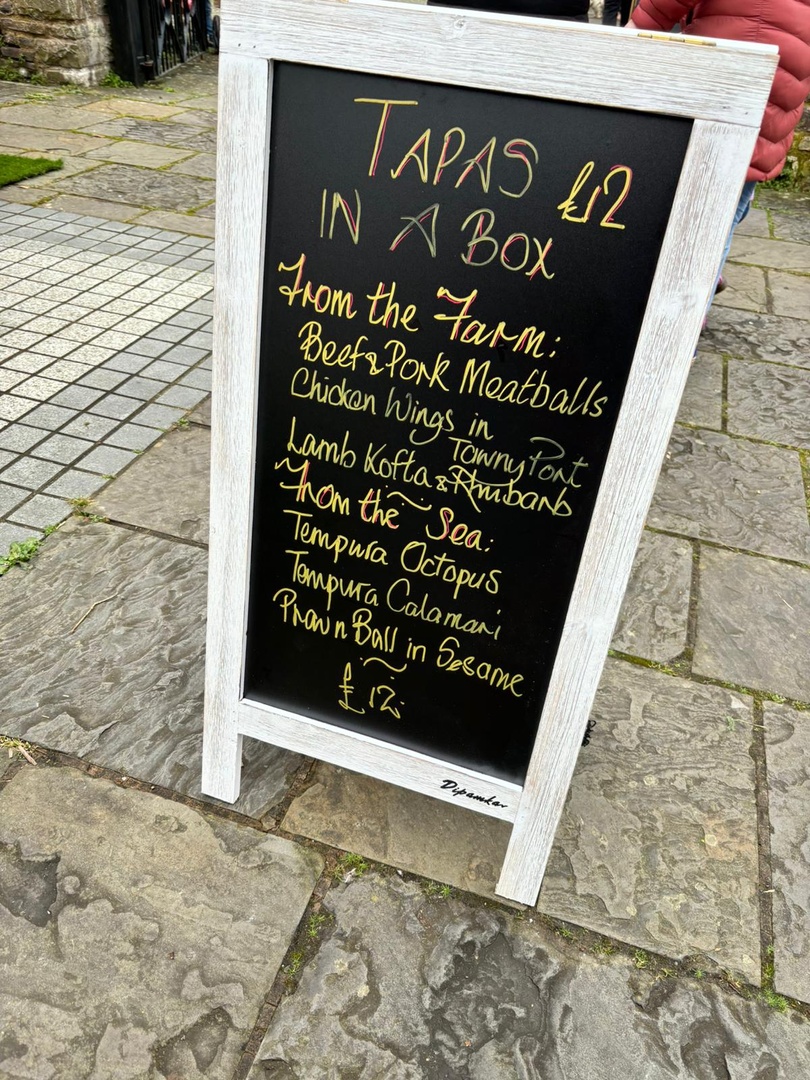 TAPAS £12
IN A BOX
From the Farm:
Beef & Pork Meatballs
Chicken Wings in
Tawny Port
Lamb Kofta & Rhubarb
From the Sea:
Tempura Octopus
Tempura Calamari
Prawn Ball in Sesame
£12
Dipamkar